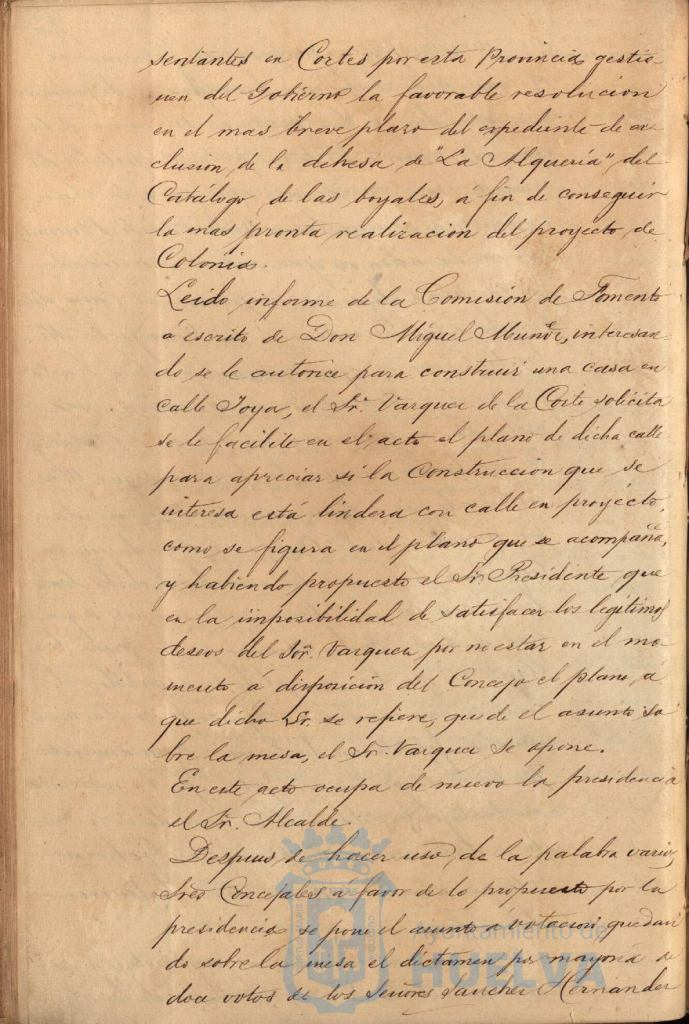 sentantes en Cortes por esta Provincia, gestio-
nen del Gobierno la favorable resolucion
en el mas breve plazo del expediente de ex-
clusion de la dehesa de "La Alqueria", del
Catálogo de las boyales, á fin de conseguir
la mas pronta realizacion del proyecto de
Colonia.
Leido informe de la Comisión de Fomento
á escrito de Don Miguel interesan-
do se le autorice para construir una casa en
calle Joya, el Sr. Vazquez de la Corte solicita
se le facilite en el acto el plano de dicha calle
para apreciar si la construccion que se
interesa está lindera con calle en proyecto,
como se figura en el plano que se acompaña,
y habiendo propuesto el Sr. Presidente, que
en la imposibilidad de satisfacer los legitimos
deseos del Sor. Vazquez por no estar en el mo-
mento á disposición del Concejo el plano, á
que dicho Sr. se refiere, quede el asunto so-
bre la mesa, el Sr. Vazquez se opone.
En este acto ocupa de nuevo la presidencia
el Sr. Alcalde.
Despues de hacer uso de la palabra varios
Sres Concejales a favor de lo propuesto por la
presidencia se pone el asunto á votacion quedan-
do sobre la mesa el dictamen por mayoria de
doce votos de los Señores Sanchez Hernandez
Ayuntamiento de
HUELVA